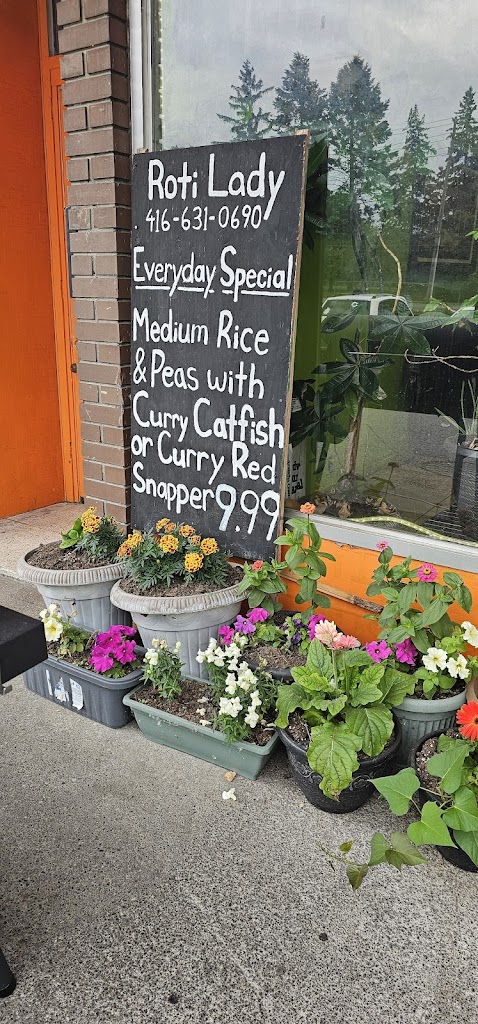 Roti Lady
416-631-0690
Everyday Special
Medium Rice
& Peas with
Curry Catfish
or Curry Red
Snapper 9.99